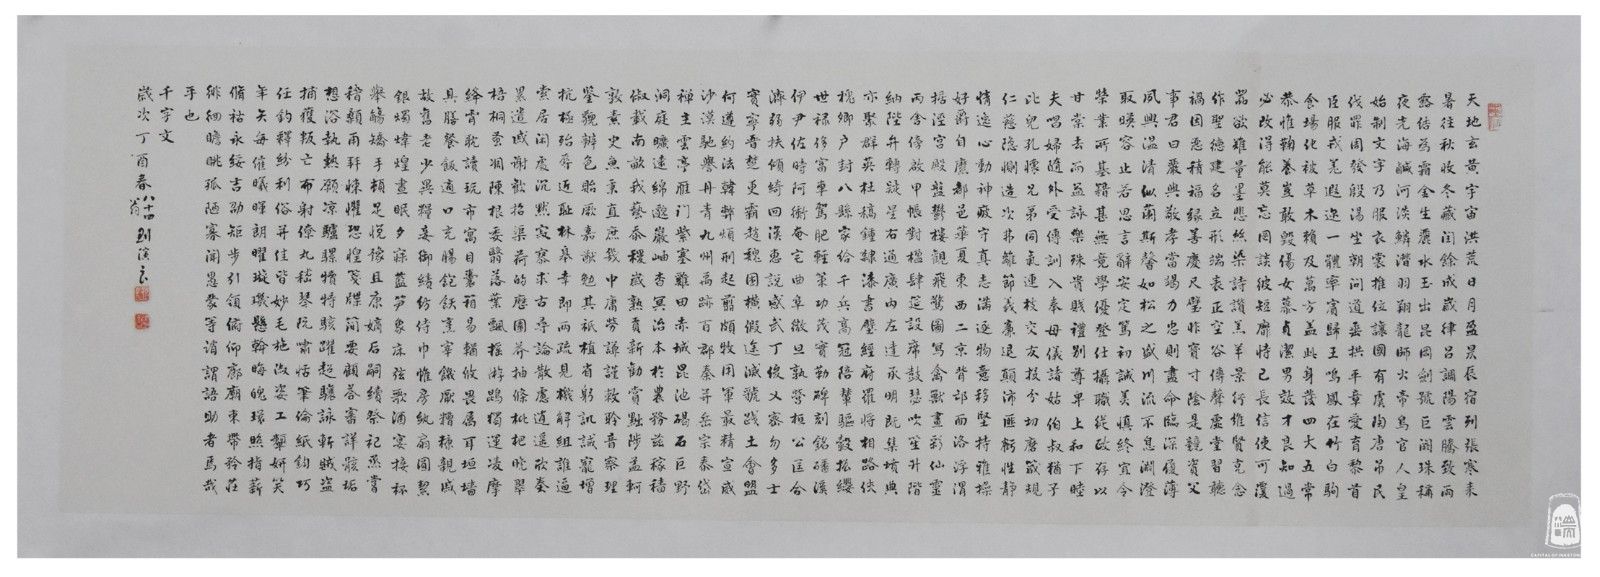 天地玄黃宇宙洪荒日月盈昃辰宿列張寒來
暑往秋收冬藏閏餘成歲律呂調陽雲騰致雨
露結為霜金生麗水玉出崑岡劍號巨闕珠稱
夜光海鹹河淡鱗潛羽翔龍師火帝鳥官人皇
始制文字乃服衣裳推位讓國有虞陶唐弔民
伐罪周發殷湯坐朝問道垂拱平章愛育黎首
臣服戎羌遐邇一體率賓歸王鳴鳳在竹白駒
食場化被草木賴及萬方蓋此身髮四大五常
恭惟鞠養豈敢毀傷女慕貞潔男效才良知過
必改得能莫忘罔談彼短靡恃己長信使可覆
器欲難量墨悲絲染詩讚羔羊景行維賢克念
作聖德建名立形端表正空谷傳聲虛堂習聽
禍因惡積福緣善慶尺璧非寶寸陰是競資父
事君曰嚴與敬孝當竭力忠則盡命臨深履薄
夙興溫清似蘭斯馨如松之盛川流不息淵澄
取映容止若思言辭安定篤初誠美慎終宜令
榮業所基籍甚無竟學優登仕攝職從政存以
甘棠去而益詠樂殊貴賤禮別尊卑上和下睦
夫唱婦隨外受傅訓入奉母儀諸姑伯叔猶子
比兒孔懷兄弟同氣連枝交友投分切磨箴規
仁慈隱惻造次弗離節義廉退顛沛匪虧性靜
情逸心動神疲守真志滿逐物意移堅持雅操
好爵自縻都邑華夏東西二京背邙面洛浮渭
據涇宮殿盤鬱樓觀飛驚圖寫禽獸畫彩仙靈
丙舍傍啟甲帳對楹肆筵設席鼓瑟吹笙升階
納陛弁轉疑星右通廣內左達承明既集墳典
亦聚群英杜稿鍾隸漆書壁經府羅將相路俠
槐卿戶封八縣家給千兵高冠陪輦驅轂振纓
世祿侈富車駕肥輕策功茂實勒碑刻銘磻溪
伊尹佐時阿衡奄宅曲阜微旦孰營桓公匡合
濟弱扶傾綺回漢惠說感武丁俊乂密勿多士
寔寧晉楚更霸趙魏困橫假途滅虢踐土會盟
何遵約法韓弊煩刑起翦頗牧用軍最精宣威
沙漠馳譽丹青九州禹跡百郡秦并岳宗泰岱
禪主雲亭雁門紫塞雞田赤城昆池碣石巨野
洞庭曠遠綿邈巖岫杳冥治本於農務茲稼穡
俶載南畝我藝黍稷稅熟貢新勸賞黜陟孟軻
敦素史魚秉直庶幾中庸勞謙謹敕聆音察理
鑒貌辨色貽厥嘉猷勉其祗植省躬譏誡寵增
抗極殆辱近恥林皋幸即兩疏見機解組誰逼
索居閒處沉默寂寥求古尋論散慮逍遙欣奏
累遣慼謝歡招渠荷的歷園莽抽條枇杷晚翠
梧桐蚤凋陳根委翳落葉飄搖游鵾獨運凌摩
絳霄耽讀玩市寓目囊箱易輶攸畏屬耳垣牆
具膳餐飯適口充腸飽飫烹宰飢厭糟糠親戚
故舊老少異糧妾御績紡侍巾帷房紈扇圓潔
銀燭煒煌晝眠夕寐藍筍象床弦歌酒宴接杯
舉觴矯手頓足悅豫且康嫡后嗣續祭祀蒸嘗
稽顙再拜悚懼恐惶箋牒簡要顧答審詳骸垢
想浴執熱願涼驢騾犢特駭躍超驤誅斬賊盜
捕獲叛亡布射僚丸嵇琴阮嘯恬筆倫紙鈞巧
任釣釋紛利俗并佳皆妙毛施淑姿工顰妍笑
年矢每催曦暉朗曜璇璣懸斡晦魄環照指薪
脩祜永綏吉劭矩步引領俯仰廊廟束帶矜莊
徘徊瞻眺孤陋寡聞愚蒙等誚謂語助者焉哉
乎也
千字文
歲次丁酉春八十四翁劉演良
CAPITAL OF INKSTONE